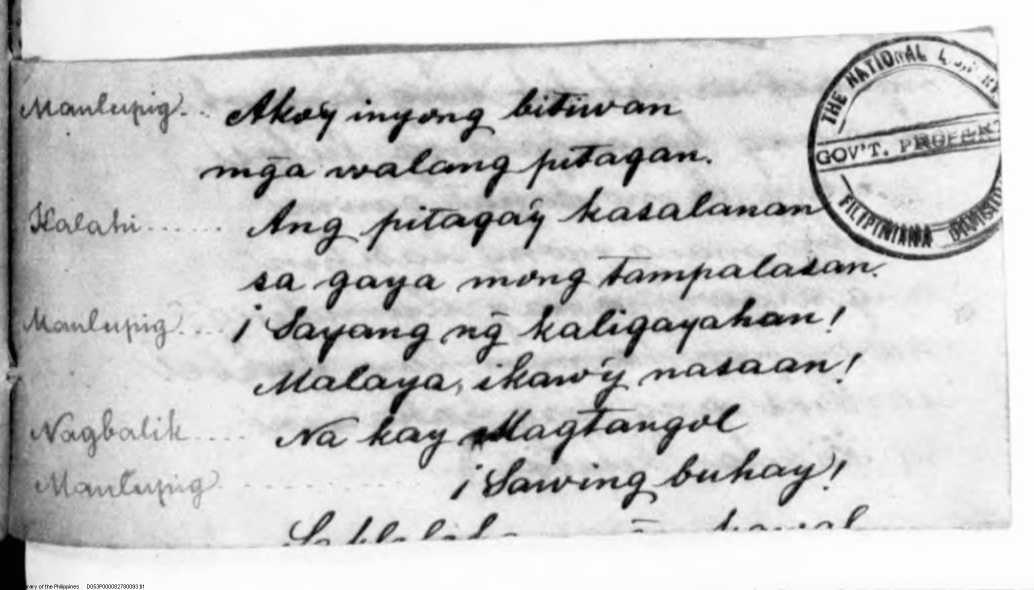 Manlupig... Akoý inyong bitiwan
mg̃a walang pitagan.
Kalahi...... Ang pitagaý kasalanan
sa gaya mong tampalasan.
Manlupig.... ¡Sayang ng̃ kaligayahan!
Malaya, ikaw'y nasaan!
Nagbalik.... Na kay Magtangol
Manlupig .............. ¡Sawing buhay!
THE NATIONAL
GOV'T.
FILIPINIANA
of the Philippines